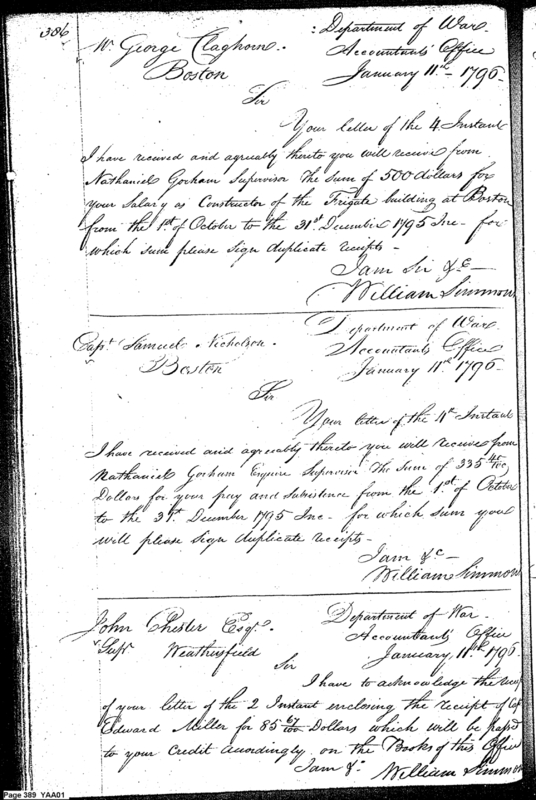 386
: Department of War
Mr George Claghorn. Accountants Office
Boston January 11th - 1796 -
Sir
Your letter of the 4 Instant
I have received and agreeably thereto you will receive from
Nathaniel Gorham Supervisor The sum of 500 dollars for
your Salary as Constructor of the Frigate building at Boston
from the 1st of October to the 31st December 1795 Inc - for
which sum please sign duplicate receipts -
I am Sir &c -
William Simmons
Department of War
Capt. Samuel Nicholson. Accountants Office
Boston January 11th 1796
Sir
Your letter of the 4th Instant
I have received and agreeably thereto you will receive from
Nathaniel Gorham Esquire Supervisor The Sum of 335 45/100
Dollars for your pay and subsistence from the 1st of October
to the 31st December 1795 Inc - for which sum you
will please sign duplicate receipts -
I am &c -
William Simmons
Department of War.
John Chester Esqr. Accountants Office
Supr Weathersfield January 11th 1796
Sir
I have to acknowledge the
of your letter of the 2 Instant enclosing the receipt of
Edward Miller for 85 67/100 Dollars which will be passd
to your Credit accordingly on the Books of this Office
I am &c William Simmons
Page 389 YAA01